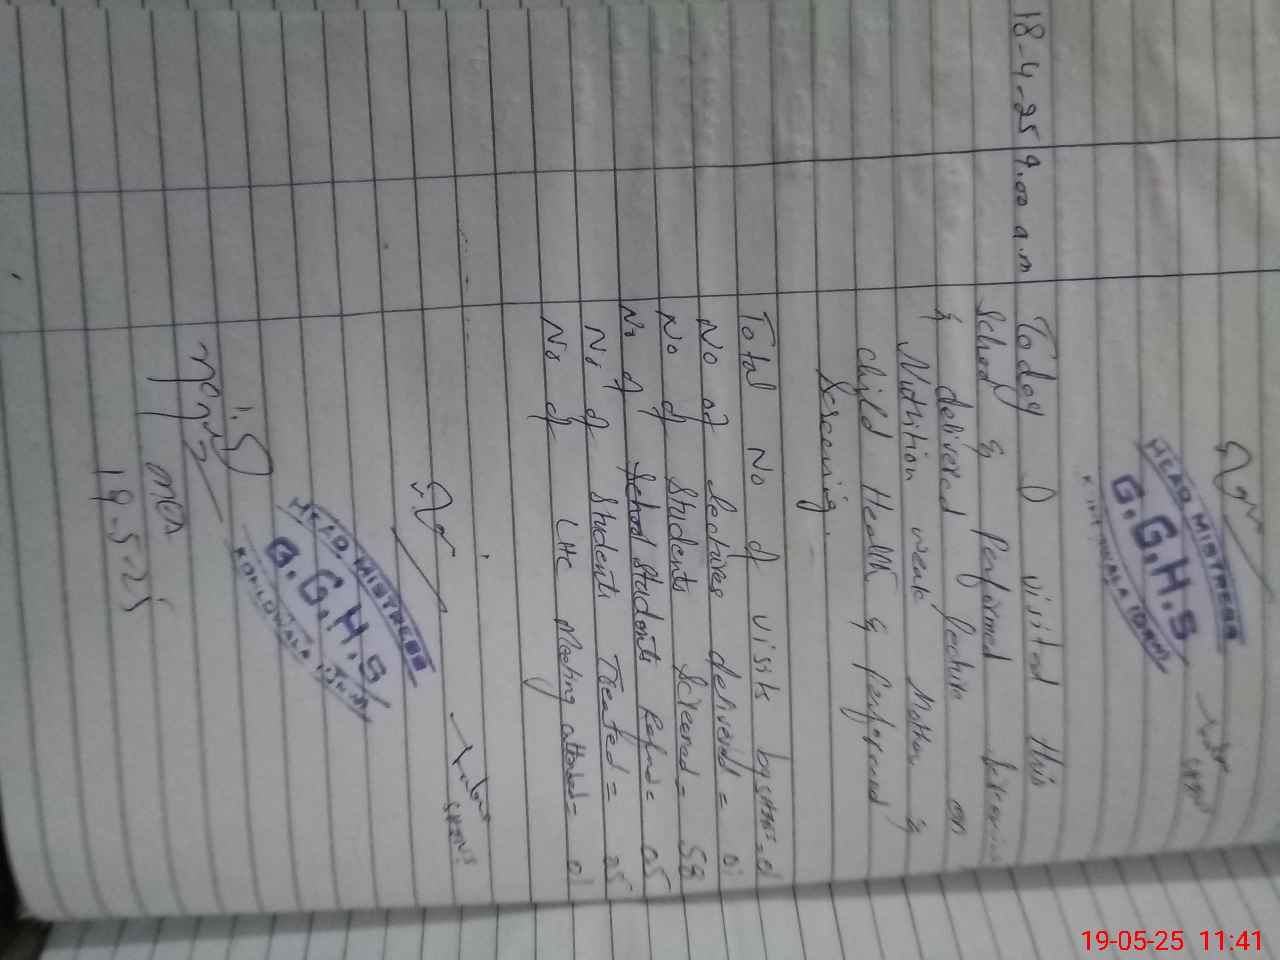 HEAD MISTRESS
G.G.H.S
18-4-25 9.00 a.m Today I visited this
School & Performed
& delivered lecture on
Nutrition weak Mother &
child Health & Performed
Screening.
Total No of visits by SHNS = 01
No of lectures delivered = 01
No of Students Screened = 58
No of School Students Refred = 05
No of Students Treated = 05
No of LHC Meeting attended = 01
SHNS
HEAD MISTRESS
G.G.H.S
MEA
19-5-25
19-05-25 11:41